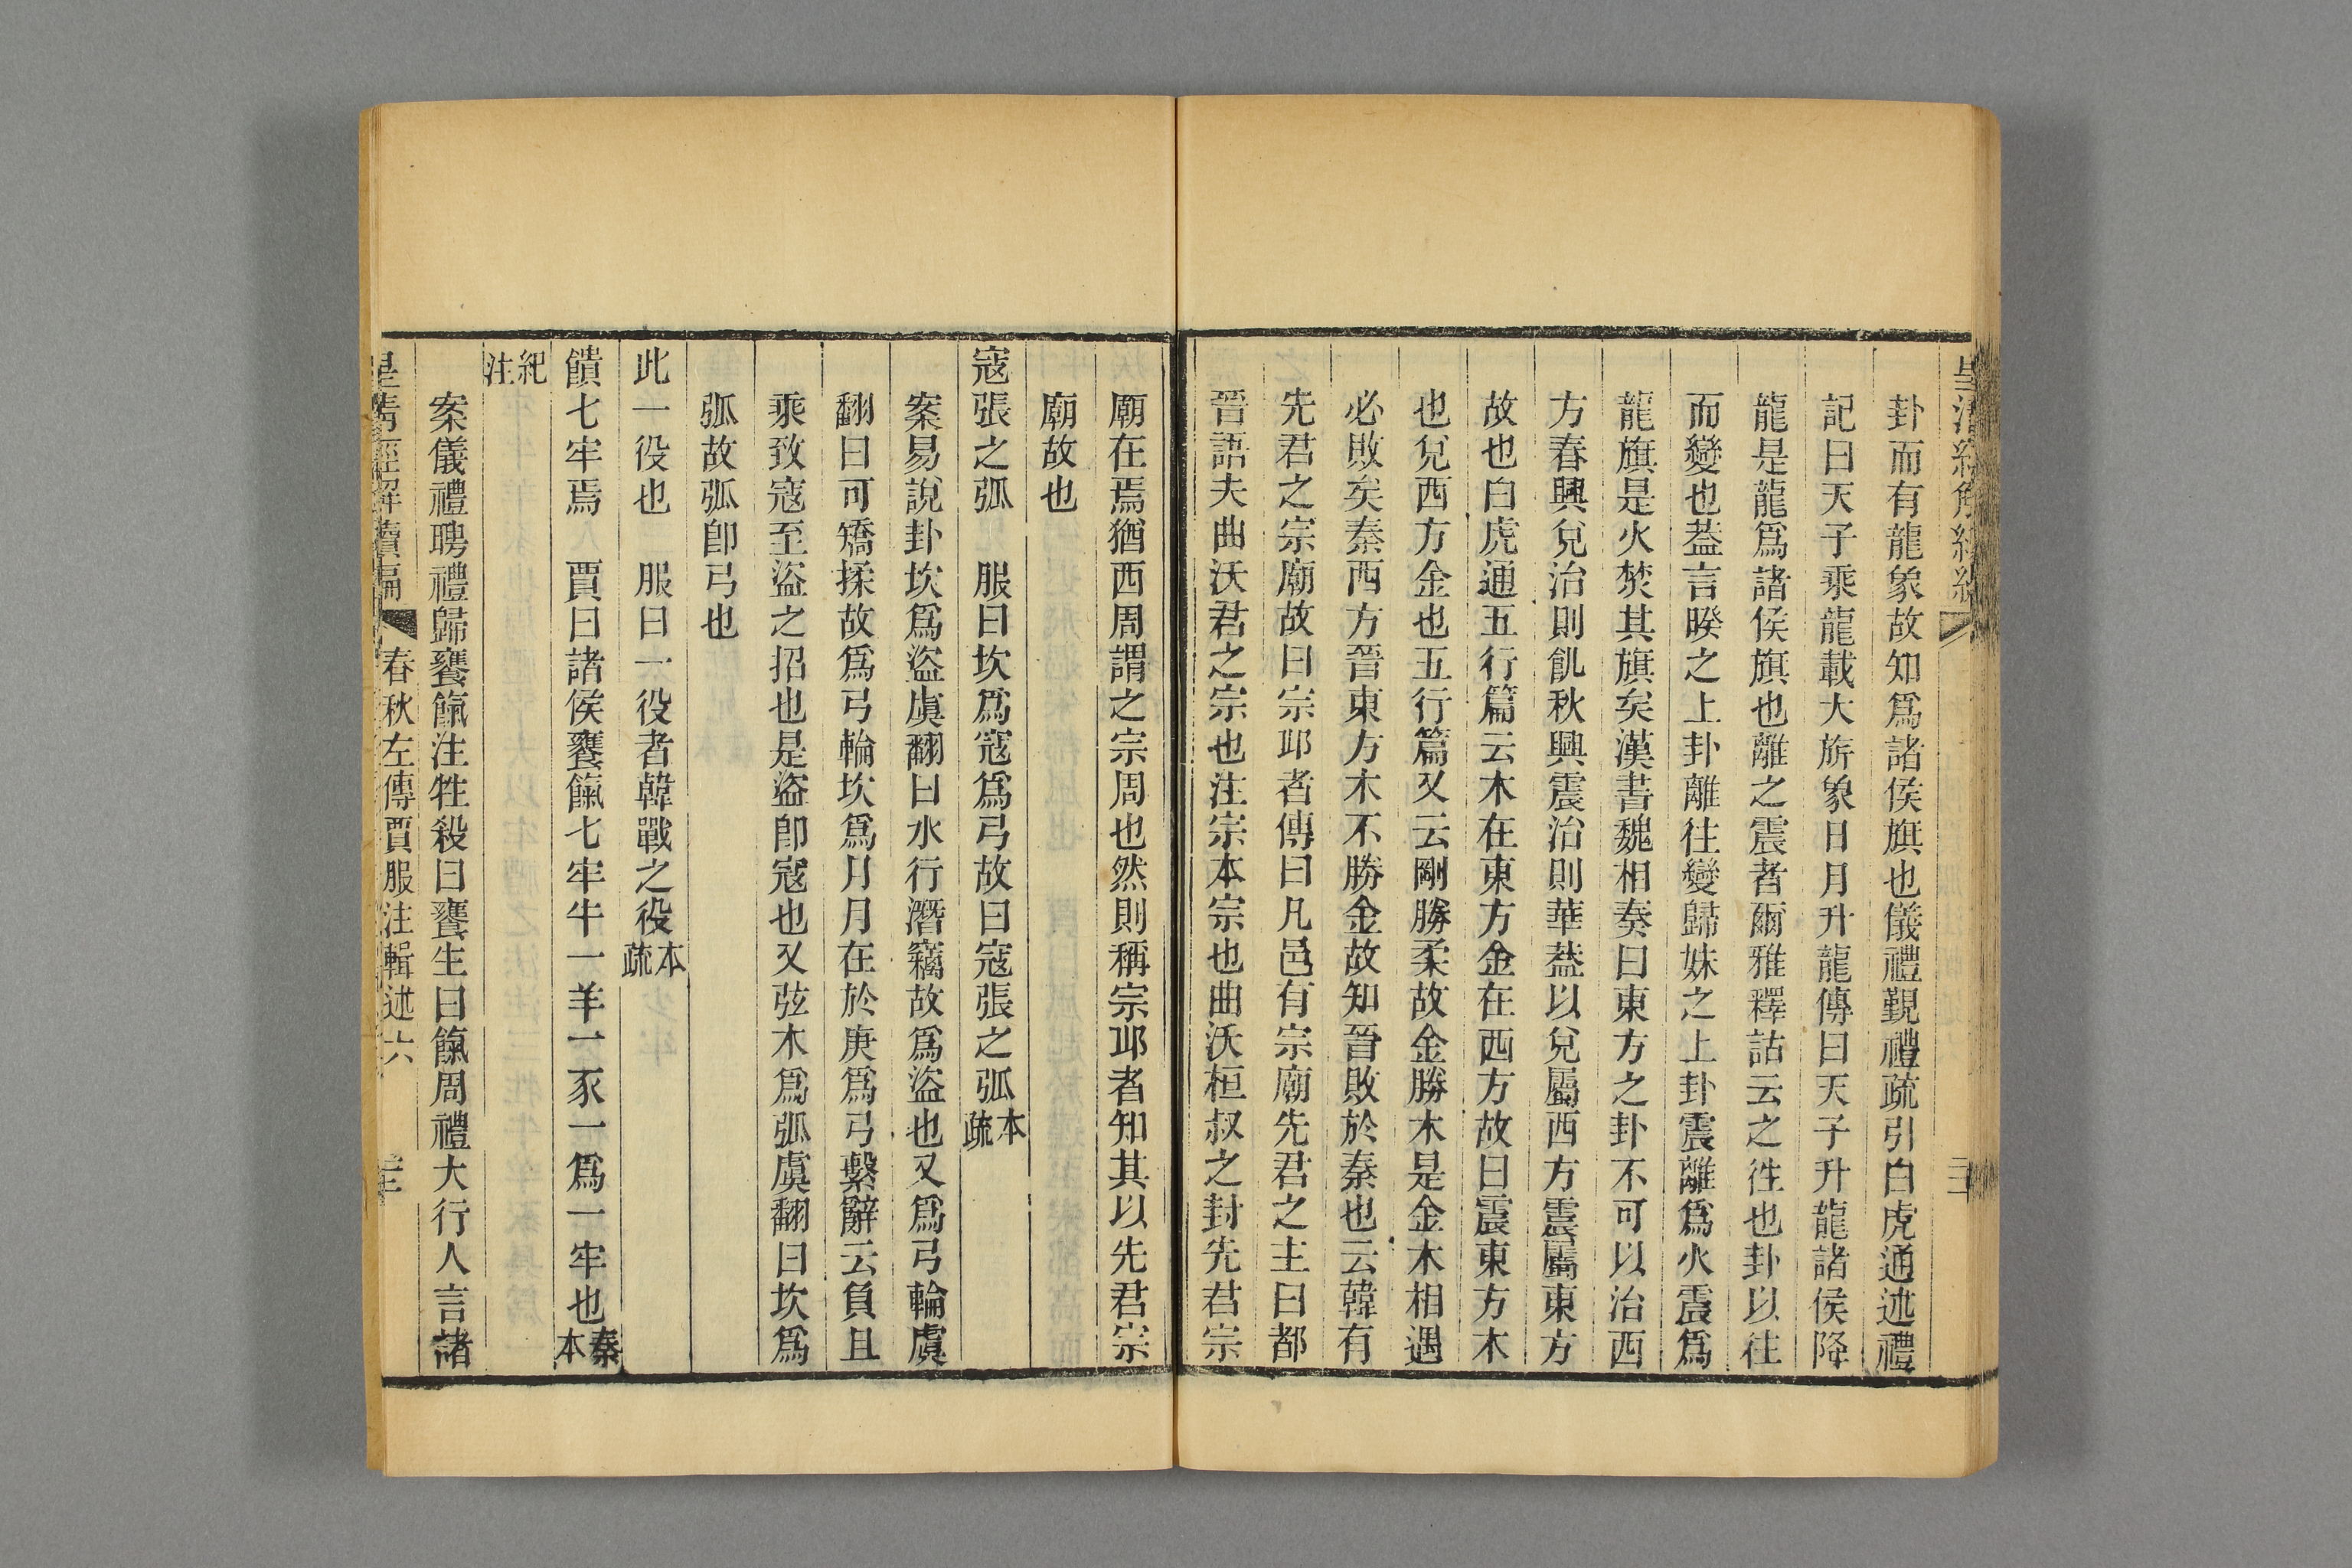 卦而有龍象故知爲諸侯旗也儀禮覲禮疏引白虎通述禮
記曰天子乘龍載大旂象日月升龍傳曰天子升龍諸侯降
龍是龍爲諸侯旗也離之震者爾雅釋詁云之往也卦以往
而變也葢言暌之上卦離往變歸妹之上卦震離爲火震爲
龍旗是火焚其旗矣漢書魏相奏曰東方之卦不可以治西
方春興兌治則飢秋興震治則華葢以兌屬西方震屬東方
故也白虎通五行篇云木在東方金在西方故曰震東方木
也兌西方金也五行篇又云剛勝柔故金勝木是金木相遇
必敗矣秦西方晉東方木不勝金故知晉敗於秦也云韓有
先君之宗廟故曰宗邱者傳曰凡邑有宗廟先君之主曰都
晉語夫曲沃君之宗也注宗本宗也曲沃桓叔之封先君宗
廟在焉猶西周謂之宗周也然則稱宗邱者知其以先君宗
廟故也
寇張之弧　服曰坎爲寇爲弓故曰寇張之弧本疏
案易說卦坎爲盜虞翻曰水行潛竊故爲盜也又爲弓輪虞
翻曰可矯揉故爲弓輪坎爲月月在於庚爲弓繫辭云負且
乘致寇至盜之招也是盜卽寇也又弦木爲弧虞翻曰坎爲
弧故弧卽弓也
此一役也　服曰一役者韓戰之役本疏
饋七牢焉　賈曰諸侯饔餼七牢牛一羊一豕一爲一牢也秦本
紀注
案儀禮聘禮歸饔餼注牲殺曰饔生曰餼周禮大行人言諸
皇清經解續編　春秋左傳賈服注輯述六